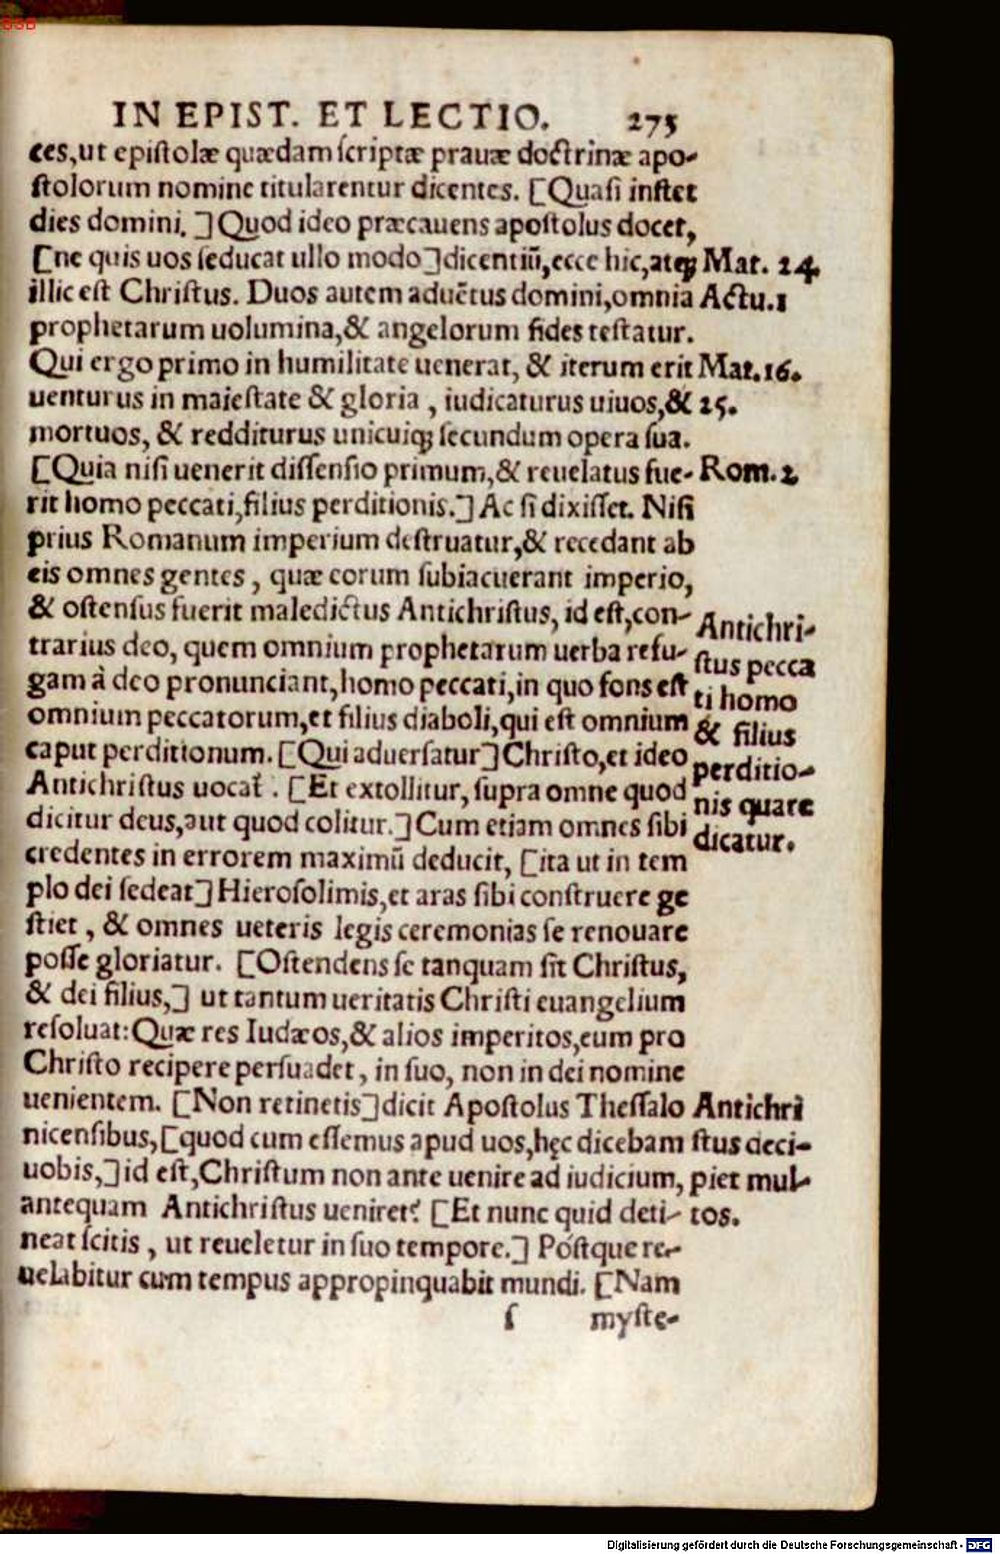 IN EPIST. ET LECTIO. 275
ces,ut epistolæ quædam scriptæ prauæ doctrinæ apo-
stolorum nomine titularentur dicentes. [Quasi instet
dies domini.] Quod ideo præcauens apostolus docet,
[ne quis uos seducat ullo modo]dicentiũ,ecce hic,atqꝫ
illic est Christus. Duos autem aduẽtus domini,omnia
prophetarum uolumina,& angelorum fides testatur.
Qui ergo primo in humilitate uenerat, & iterum erit
uenturus in maiestate & gloria , iudicaturus uiuos,&
mortuos, & redditurus unicuiqꝫ secundum opera sua.
[Quia nisi uenerit dissensio primum,& reuelatus fue-
rit homo peccati,filius perditionis.] Ac si dixisset. Nisi
prius Romanum imperium destruatur,& recedant ab
eis omnes gentes , quæ eorum subiacuerant imperio,
& ostensus fuerit maledictus Antichristus, id est,con-
trarius deo, quem omnium prophetarum uerba refu-
gam à deo pronunciant,homo peccati,in quo fons est
omnium peccatorum,et filius diaboli,qui est omnium
caput perditionum. [Qui aduersatur] Christo,et ideo
Antichristus uocat᷑ . [Et extollitur, supra omne quod
dicitur deus,aut quod colitur.] Cum etiam omnes sibi
credentes in errorem maximũ deducit, [ita ut in tem
plo dei sedeat] Hierosolimis,et aras sibi construere ge
stiet , & omnes ueteris legis ceremonias se renouare
posse gloriatur. [Ostendens se tanquam sit Christus,
& dei filius,] ut tantum ueritatis Christi euangelium
resoluat: Quæ res Iudæos,& alios imperitos,eum pro
Christo recipere persuadet , in suo, non in dei nomine
uenientem. [Non retinetis]dicit Apostolus Thessalo
nicensibus,[quod cum essemus apud uos,hęc dicebam
uobis,] id est,Christum non ante uenire ad iudicium,
antequam Antichristus ueniret? [Et nunc quid deti-
neat scitis , ut reueletur in suo tempore.] Póstque re-
uelabitur cum tempus appropinquabit mundi. [Nam
s myste-
Mat. 24.
Actu.1
Mat.16.
25.
Rom.2
Antichri-
stus pecca
ti homo
& filius
perditio-
nis quare
dicatur.
Antichri
stus deci-
piet mul-
tos.
Digitalisierung gefördert durch die Deutsche Forschungsgemeinschaft - DFG